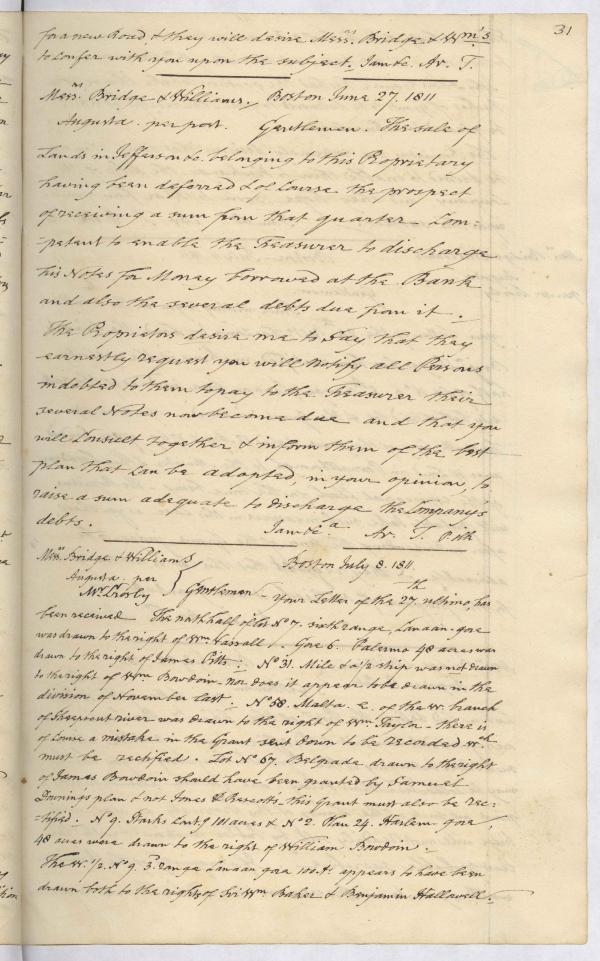 31
for a new Road, & they will desire Messrs. Bridge & Wm's
to Confer with you upon the subject. I am &c. Ar. T.
Messrs. Bridge & Williams, Boston June 27. 1811
Augusta. per post. Gentlemen. The sale of
Lands in Jefferson &c. belonging to this Proprietary
having been deferred & of Course the prospect
of receiving a sum from that quarter Com=
=petent to enable the Treasurer to discharge
his Notes for Money borrowed at the Bank
and also the several debts due from it.
The Proprietors desire me to Say that they
earnestly request you will Notify all Persons
indebted to them to pay to the Treasurer their
several Notes now become due and that you
will Consult together & inform them of the best
plan that Can be adopted, in your opinion, to
raise a sum adequate to discharge the Company's
debts. I am &c.a Ar. T.
Messrs. Bridge & Williams Boston July 8. 1811.
Augusta. per
Mr. Crosby Gentlemen - Your Letter of the 27th. ultimo, has
been received The north half of Lot No. 7. sixth range, Canaan-gore
was drawn to the right of Wm. Vassall. Gore 6. Palermo 48 acres was
drawn to the right of James Pitts: No. 31. Mile & a 1/2 strip was not drawn
to the right of Wm. Bowdoin - nor does it appear to be drawn in the
division of November last. No. 58. Malta. E. of the W. branch
of Sheepscut river was drawn to the right of Wm. Taylor - there is
of Course a mistake in the Grant sent down to be recorded wch.
must be rectified. Lot No. 67. Belgrade drawn to the right
of James Bowdoin should have been granted by Samuel
Downing's plan & not Jones & Prescotts, this Grant must also be rec=
=tified. No. 9. Starks Cont.g 101 acres & No. 2. Plan 24. Harlem gore,
48 acres were drawn to the right of William Bowdoin.
The W. 1/2. No. 9. 3. range Canaan gore 100 As. appears to have been
drawn both to the rights of Sir Wm. Baker & Benjamin Hallowell.